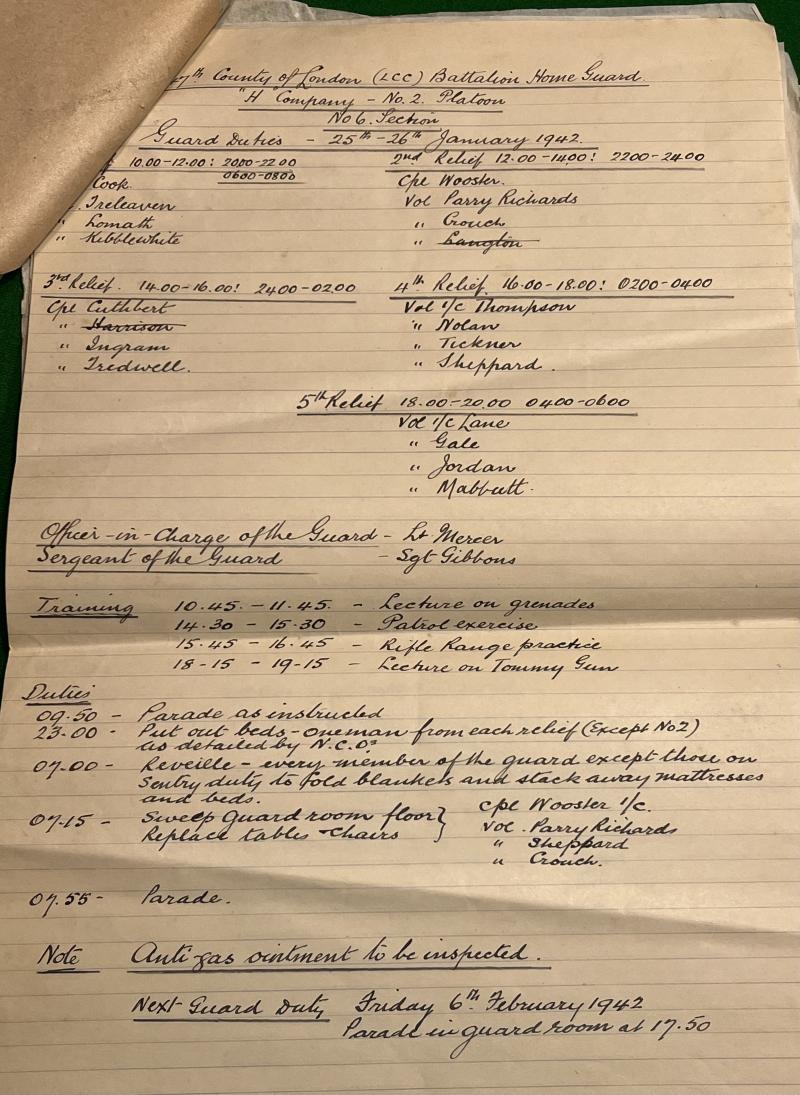 7th County of London (LCC) Battalion Home Guard.
"H" Company - No. 2. Platoon
No 6. Section
Guard Duties - 25th - 26th January 1942.
10.00-12.00: 2000-22.00
0600-0800
Cook.
Treleaven
" Lomath
" Kibblewhite
2nd Relief 12.00-1400: 2200-2400
Cpl Wooster.
Vol Parry Richards
" Crouch
" Langton
3rd Relief. 14.00-16.00: 2400-02.00
Cpl Cuthbert
" Harrison
" Ingram
" Tredwell.
4th Relief. 16.00-18.00: 0200-0400
Vol i/c Thompson
" Nolan
" Tickner
" Sheppard.
5th Relief 18.00-20.00 0400-0600
Vol i/c Lane
" Gale
" Jordan
" Mabbutt.
Officer-in-Charge of the Guard - Lt Mercer
Sergeant of the Guard - Sgt Gibbons
Training 10.45. - 11.45. - Lecture on grenades
14.30 - 15.30 - Patrol exercise
15.45 - 16.45 - Rifle Range practice
18-15 - 19-15 - Lecture on Tommy Gun
Duties
09.50 - Parade as instructed
23.00 - Put out beds - one man from each relief (Except No 2)
as detailed by N.C.Os
07.00 - Reveille - every member of the guard except those on
Sentry duty to fold blankets and stack away mattresses
and beds.
07.15 - Sweep Guard room floor }
Replace tables & chairs
Cpl Wooster i/c.
Vol. Parry Richards
" Sheppard
" Crouch.
07.55 - Parade.
Note Anti-gas ointment to be inspected.
Next Guard Duty Friday 6th February 1942
Parade in guard room at 17.50